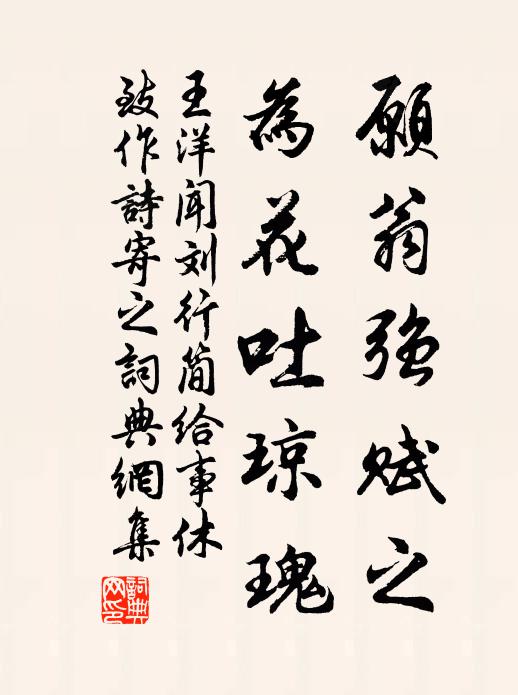 願翁強赋之
為花吐琼瑰
王洋闻刘行简给事休
致作詩寄之詞典網集
詞典網印